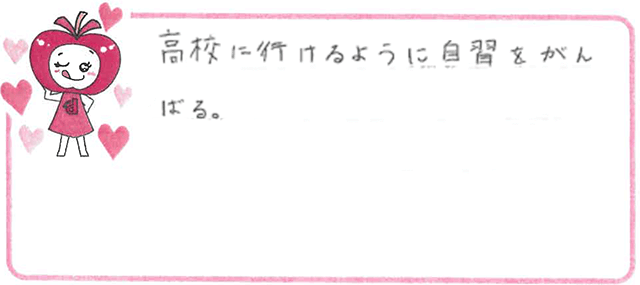 高校に行けるように自習をがん
ばる。